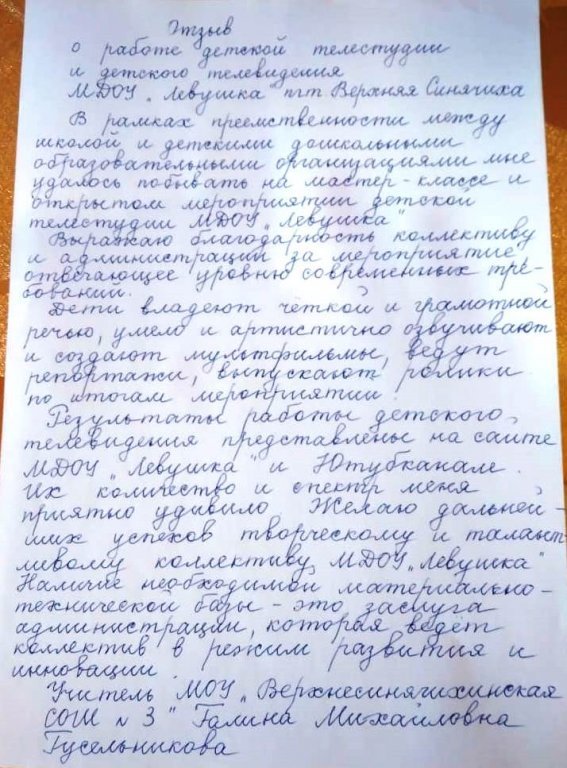 Отзыв
о работе детской телестудии
и детского телевидения
МДОУ „Левушка" пгт Верхняя Синячиха
В рамках преемственности между
школой и детскими дошкольными
образовательными организациями мне
удалось побывать на мастер-классе и
открытом мероприятии детской
телестудии МДОУ „Левушка"
Выражаю благодарность коллективу
и администрации за мероприятие,
отвечающее уровню современных тре-
бований.
Дети владеют чёткой и грамотной
речью, умело и артистично озвучивают
и создают мультфильмы, ведут
репортажи, выпускают ролики
по итогам мероприятий.
Результаты работы детского
телевидения представлены на сайте
МДОУ „Левушка" и Ютубканале.
Их количество и спектр меня
приятно удивило. Желаю дальней-
ших успехов творческому и талант-
ливому коллективу МДОУ „Левушка"
Наличие необходимой материально-
технической базы - это заслуга
администрации, которая ведёт
коллектив в режим развития и
инновации.
Учитель МОУ „Верхнесинячихинская
СОШ № 3" Галина Михайловна
Гусельникова